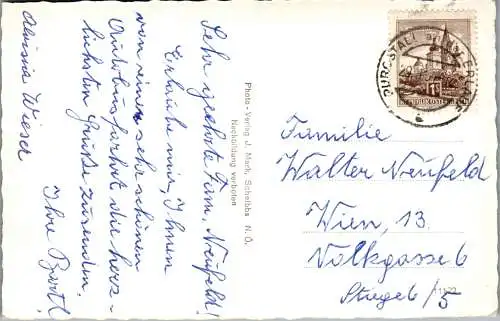 Sehr geehrte Fam. Neufeld!
Erlaube mir, Ihnen
von einer sehr schönen
Autobusfahrt die herz-
lichsten Grüße zusenden.
Ihre
Wieser
Photo-Verlag J. Mark, Scheibbs N. Ö.
Nachbildung verboten
PURGSTALL
Familie
Walter Neufeld
Wien, 13.
Volkgasse 6
Stiege 6/5